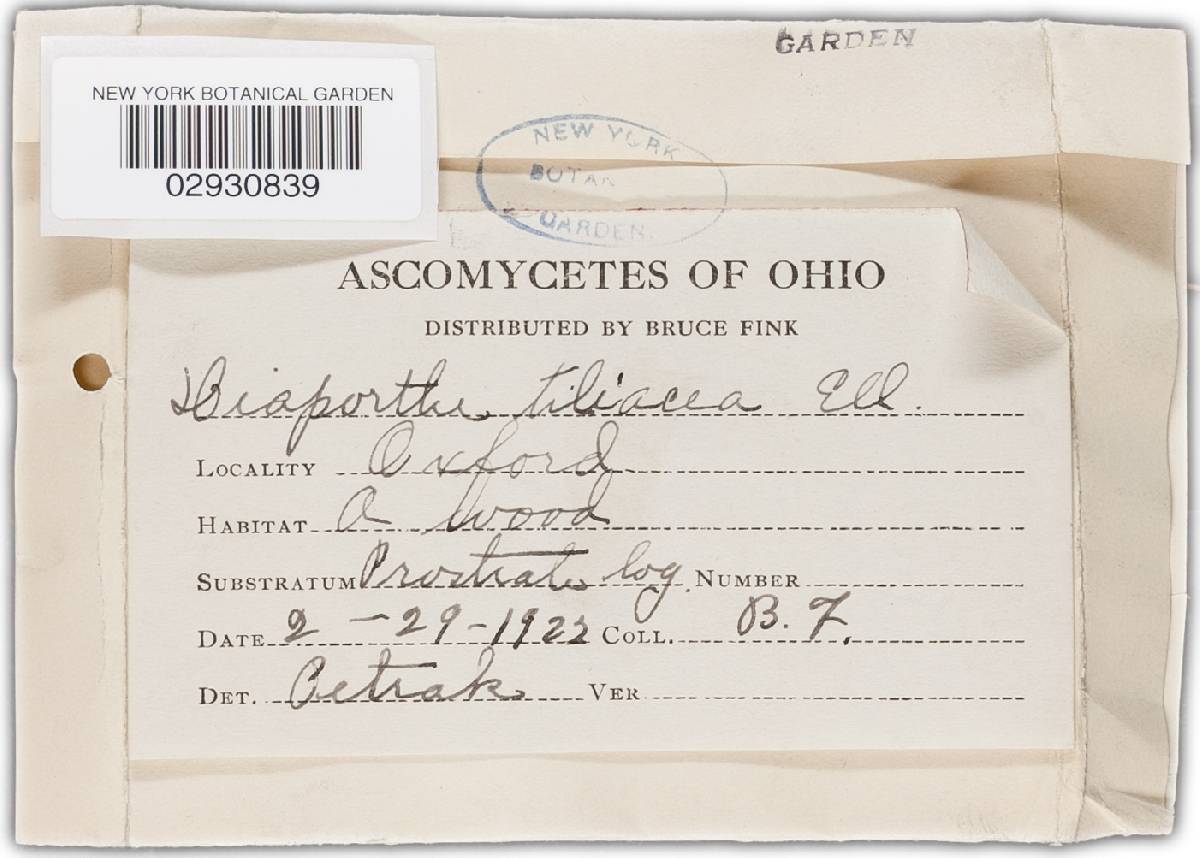 GARDEN
NEW YORK BOTANICAL GARDEN
02930839
NEW YORK
BOTAN
GARDEN.
ASCOMYCETES OF OHIO
DISTRIBUTED BY BRUCE FINK
Diaporthe tiliacea Ell.
LOCALITY Oxford
HABITAT A wood
SUBSTRATUM Prostrate log. NUMBER
DATE 2-29-1922 COLL. B. F.
DET. Petrak VER